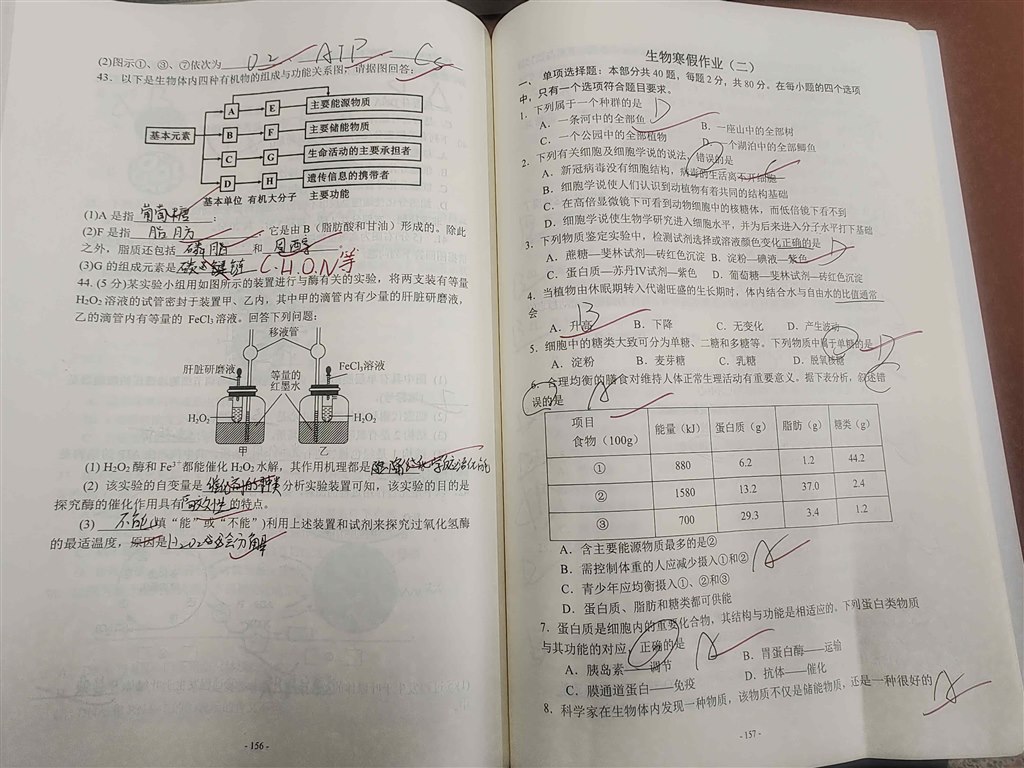 (2)图示①、③、⑦依次为 O2 ATP C5
43. 以下是生物体内四种有机物的组成与功能关系图，请据图回答：
基本元素
A E 主要能源物质
B F 主要储能物质
C G 生命活动的主要承担者
D H 遗传信息的携带者
基本单位 有机大分子 主要功能
(1)A 是指 葡萄糖 ；
(2)F 是指 脂肪 ，它是由 B（脂肪酸和甘油）形成的。除此
之外，脂质还包括 磷脂 和 固醇 。
(3)G 的组成元素是 C.H.O.N等
44. (5 分)某实验小组用如图所示的装置进行与酶有关的实验，将两支装有等量
H₂O₂ 溶液的试管密封于装置甲、乙内，其中甲的滴管内有少量的肝脏研磨液，
乙的滴管内有等量的 FeCl₃ 溶液。回答下列问题：
移液管
肝脏研磨液 等量的红墨水 FeCl₃溶液
H₂O₂ H₂O₂
甲 乙
(1) H₂O₂ 酶和 Fe³⁺ 都能催化 H₂O₂ 水解，其作用机理都是 化学反应活化能
(2) 该实验的自变量是 催化剂的种类 分析实验装置可知，该实验的目的是
探究酶的催化作用具有 高效性 的特点。
(3) 不能 (填“能”或“不能”)利用上述装置和试剂来探究过氧化氢酶
的最适温度，原因是 H2O2 会分解
- 156 -
生物寒假作业（二）
一、单项选择题：本部分共 40 题，每题 2 分，共 80 分。在每小题的四个选项
中，只有一个选项符合题目要求。
1. 下列属于一个种群的是 D
A. 一条河中的全部鱼 B. 一座山中的全部树
C. 一个公园中的全部植物 D. 一个湖泊中的全部鲫鱼
2. 下列有关细胞及细胞学说的说法，错误的是 C
A. 新冠病毒没有细胞结构，病毒的生活离不开细胞
B. 细胞学说使人们认识到动植物有着共同的结构基础
C. 在高倍显微镜下可看到动物细胞中的核糖体，而低倍镜下看不到
D. 细胞学说使生物学研究进入细胞水平，并为后来进入分子水平打下基础
3. 下列物质鉴定实验中，检测试剂选择或溶液颜色变化正确的是 D
A. 蔗糖—斐林试剂—砖红色沉淀 B. 淀粉—碘液—紫色
C. 蛋白质—苏丹Ⅳ试剂—紫色 D. 葡萄糖—斐林试剂—砖红色沉淀
4. 当植物由休眠期转入代谢旺盛的生长期时，体内结合水与自由水的比值通常
会 B
A. 升高 B. 下降 C. 无变化 D. 产生波动
5. 细胞中的糖类大致可分为单糖、二糖和多糖等。下列物质中属于单糖的是 D
A. 淀粉 B. 麦芽糖 C. 乳糖 D. 脱氧核糖
6. 合理均衡的膳食对维持人体正常生理活动有重要意义。据下表分析，叙述错
误的是 A
项目 食物（100g） 能量（kJ） 蛋白质（g） 脂肪（g） 糖类（g）
① 880 6.2 1.2 44.2
② 1580 13.2 37.0 2.4
③ 700 29.3 3.4 1.2
A. 含主要能源物质最多的是②
B. 需控制体重的人应减少摄入①和② A
C. 青少年应均衡摄入①、②和③
D. 蛋白质、脂肪和糖类都可供能
7. 蛋白质是细胞内的重要化合物，其结构与功能是相适应的。下列蛋白类物质
与其功能的对应，正确的是 A
A. 胰岛素——调节 B. 胃蛋白酶——运输
C. 膜通道蛋白——免疫 D. 抗体——催化
8. 科学家在生物体内发现一种物质，该物质不仅是储能物质，还是一种很好的 A
- 157 -